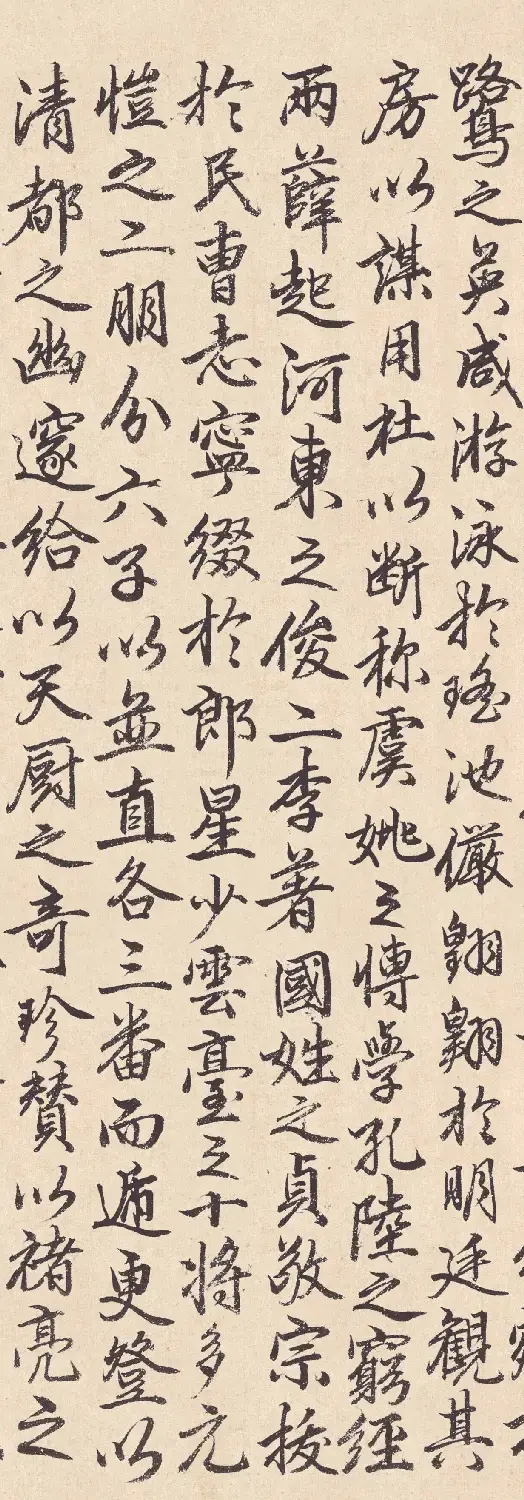 鷺之英咸游泳於瑤池儼翱翱於明廷観其
房以謀用杜以断称虞姚之愽學孔陸之窮經
兩薛起河東之俊二李著國姓之貞敬宗拔
於民曺志寧綴於郎星少雲臺之十将多元
愷之二朋分六子以並直各三番而遁更登以
清都之幽邃給以天厨之奇珍賛以禇亮之